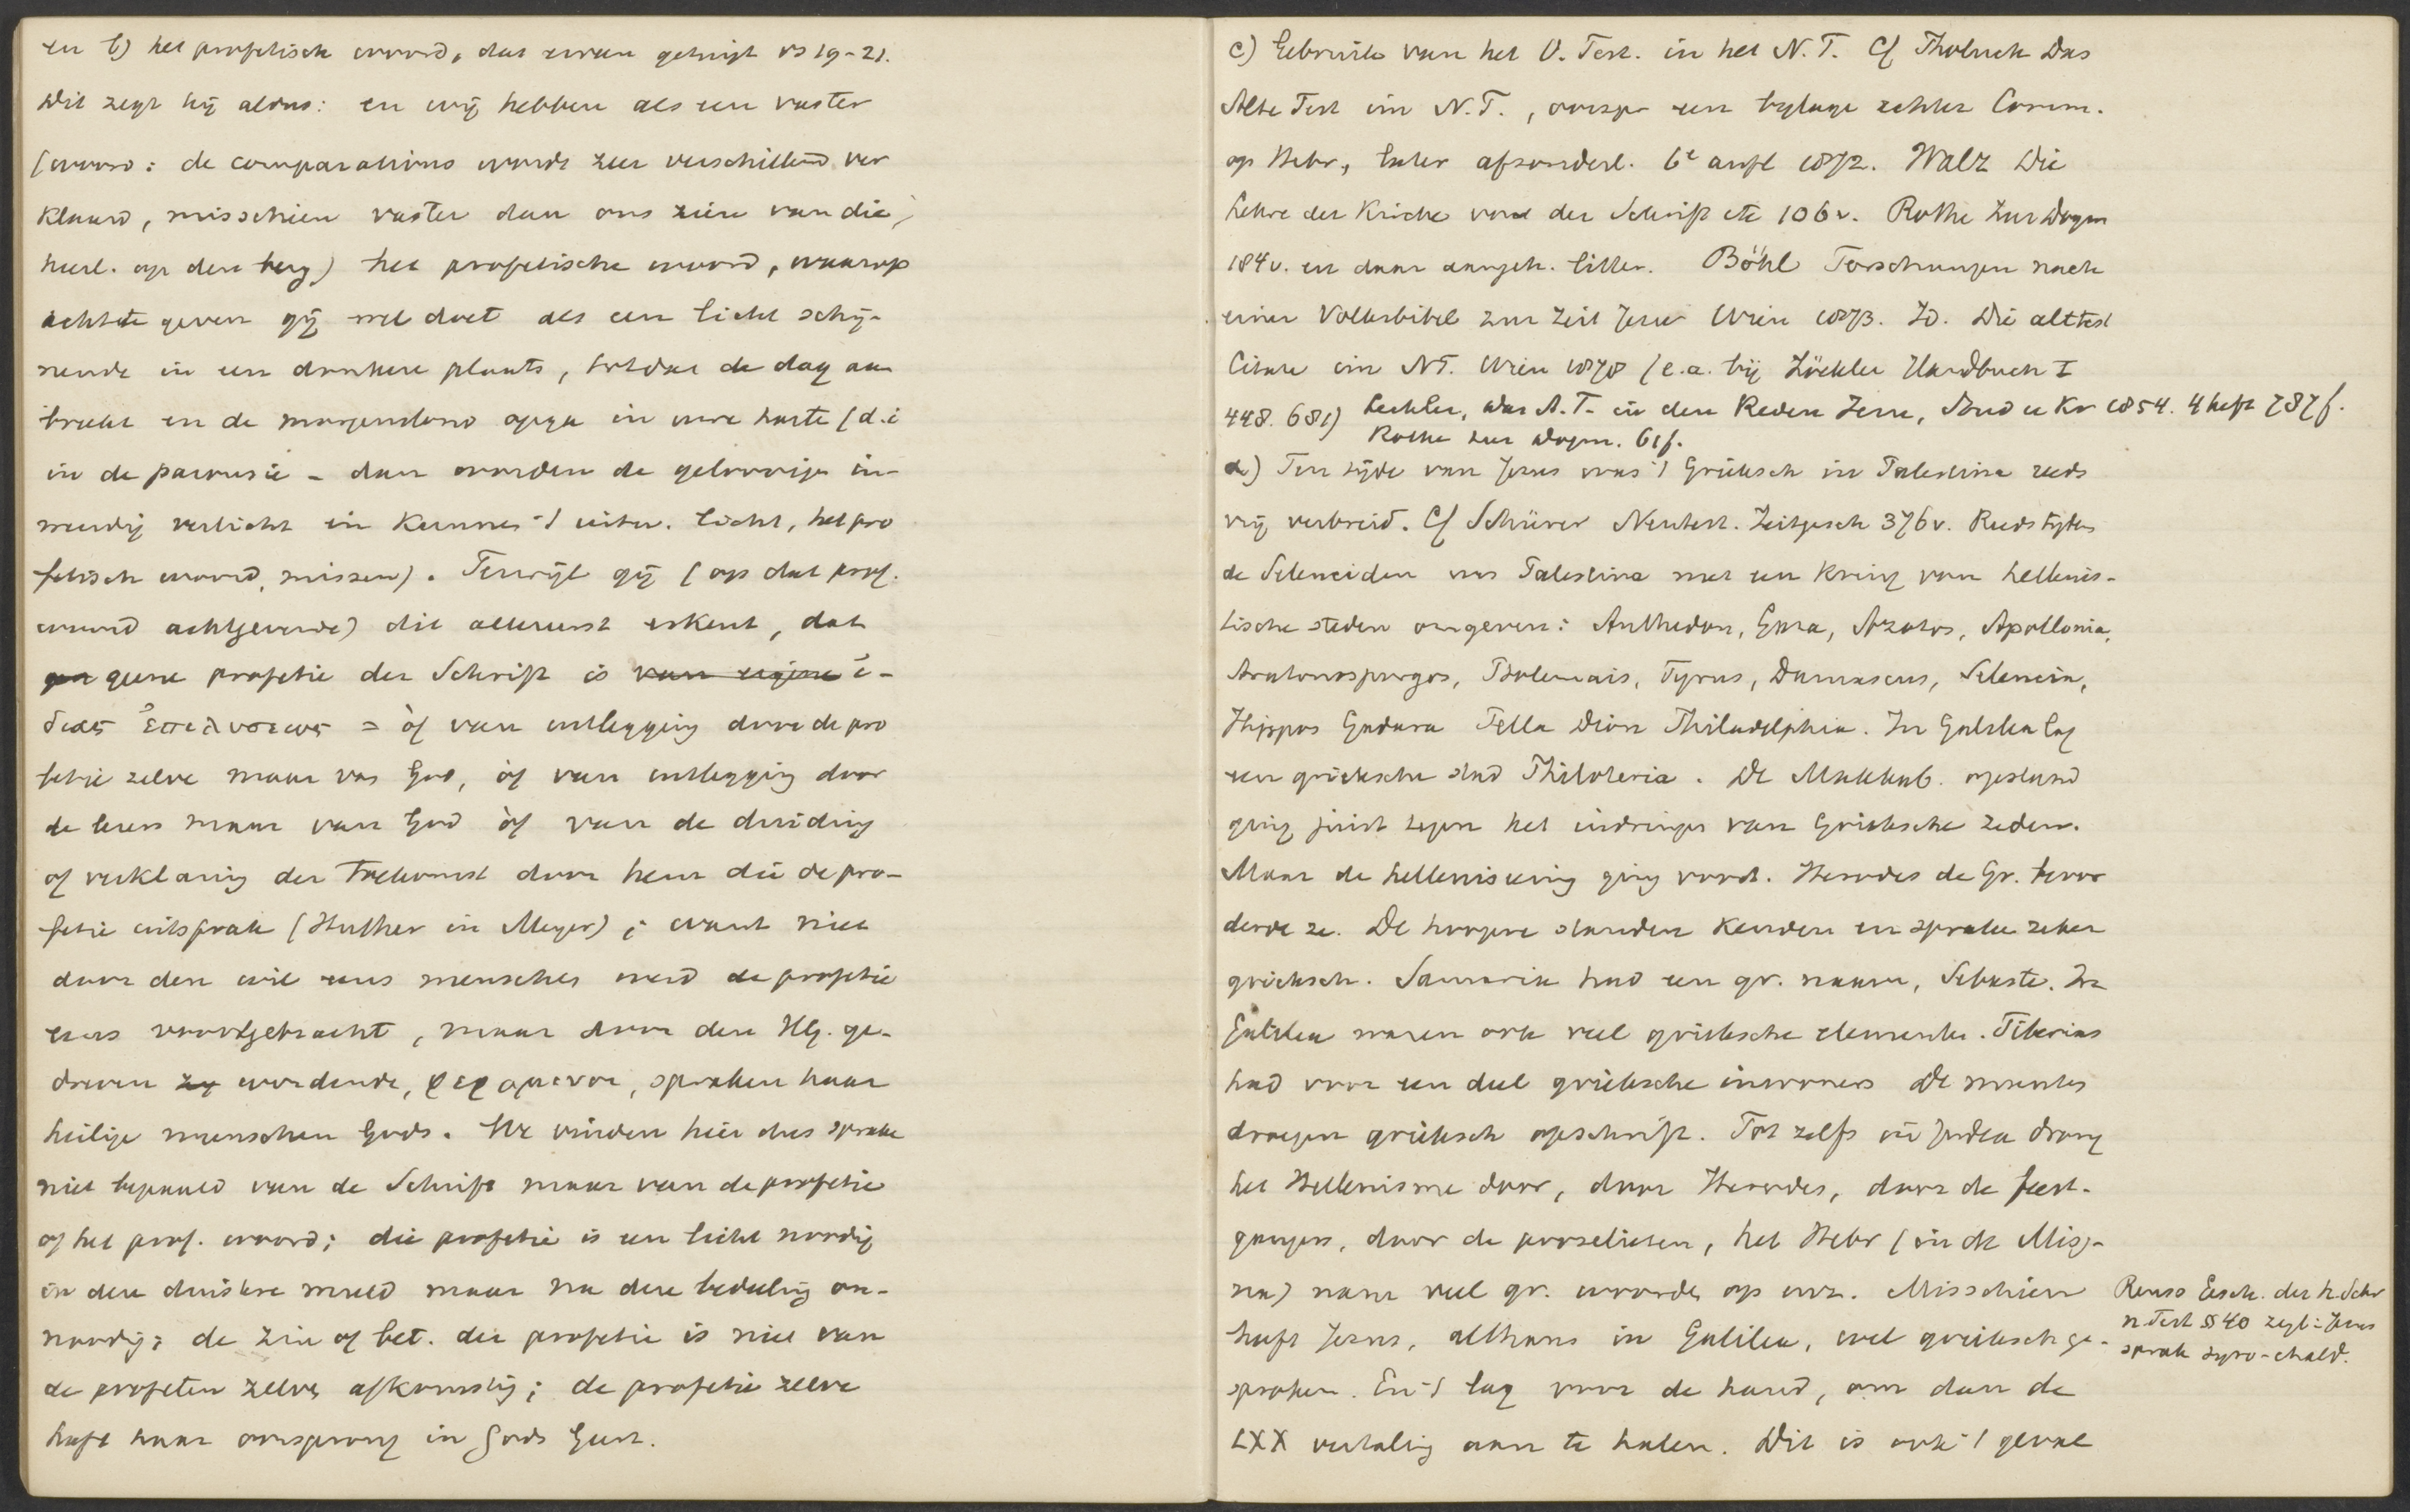 en b) het profetisch woord, dat ervan getuigt vs 19-21.
Dit zegt hij aldus: en wij hebben als een vaster
(woord: de comparativus wordt zeer verschillend ver
klaard, misschien vaster dan ons zien van die
heerl. op den berg) het profetische woord, waarop
acht te geven gij wel doet als een licht schij-
nende in een donkere plaats, totdat de dag aan
breekt en de morgenstond opga in uwe harte (d.i
in de parousie - dan worden de geloovige in-
wendig verlicht en kunnen 't uitw. licht, het pro
fetisch woord, missen). Terwijl gij (op dat prof.
woord achtgevende) dit allereerst erkent, dat
geene profetie der Schrift is van eigene ἰ-
διας ἐπιλυσεως = òf van uitlegging door de pro
fetie zelve maar van God, òf van uitlegging door
de lezers maar van God òf van de duiding
of verklaring der toekomst door hem die de pro-
fetie uitsprak (Huther in Meyer); want niet
door den wil eens menschen werd de profetie
eens voortgebracht, maar door den Hlg. ge-
dreven zij wordende, φερομενοι, spraken haar
heilige menschen Gods. We vinden hier dus sprake
niet bepaald van de Schrift maar van de profetie
of het prof. woord; die profetie is een licht noodig
in deze duistere wereld maar na deze bedeeling on-
noodig; de zin of bet. der profetie is niet van
de profeten zelve afkomstig; de profetie zelve
heeft haar oorsprong in Gods Geest.
c) Gebruik van het O. Test. in het N. T. Cf Tholuck Das
Alte Test im N. T., oorspr een bijlage achter Comm.
op Hebr, later afzonderl. 6e aufl 1872. Walz Die
Lehre der Kirche von der Schrift etc 106v. Rothe Zur Dogm
184v. en daar aangeh. litter. Böhl Forschungen nach
einer Volksbibel zur Zeit Jesu Wien 1873. Id. Die alttest
Citate im NT. Wien 1878 (e.a. bij Zöckler Handbuch I
448. 681) Lechler, das A. T. in den Reden Jesu, Stud u Kr 1854. 4 heft 787f.
Rothe zur Dogm. 61f.
a) Ten tijde van Jezus was 't Grieksch in Palestina reeds
vrij verbreid. Cf Schürer Neutest. Zeitgesch 376v. Reeds tijdens
de Seleuciden was Palestina met een kring van hellenis-
tische steden omgeven: Anthedon, Gaza, Azotos, Apollonia,
Stratonospurgos, Ptolemais, Tyrus, Damascus, Seleucia,
Hippos Gadara Pella Dion Philadelphia. In Galilea lag
een grieksche stad Philoteria. De Makkab. opstand
ging juist tegen het indringen van Grieksche zeden.
Maar de helleniseering ging voort. Herodes de Gr. bevor
derde ze. De hoogere standen kenden en spraken zeker
grieksch. Samaria had een gr. naam, Sebaste. In
Galilea waren ook veel grieksche elementen. Tiberias
had voor een deel grieksche inwoners De munten
droegen grieksch opschrift. Tot zelfs in Judea drong
het Hellenisme door, door Herodes, door de feest-
gangers, door de proselieten, het Hebr (in de Misj-
na) nam veel gr. woorden op enz. Misschien
heeft Jezus, althans in Galilea, wel grieksch ge-
sproken. En 't lag voor de hand, om dan de
LXX vertaling aan te halen. Dit is ook 't geval
Reuss Gesch. der h. Schr
n. Test § 40 zegt: Jezus
sprak syro-chald.